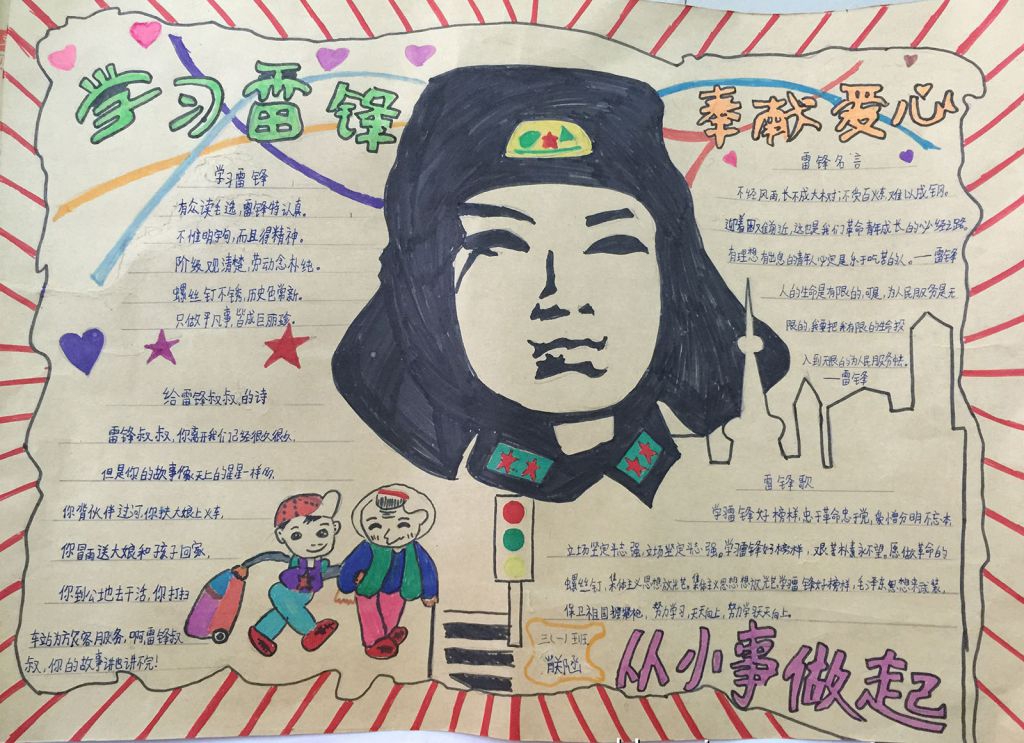 学习雷锋
奉献爱心
学习雷锋
有众读毛选，雷锋特认真。
不惟明字句，而且得精神。
阶级观清楚，劳动念朴纯。
螺丝钉不锈，历史色常新。
只做平凡事，皆成巨丽珍。
给雷锋叔叔的诗
雷锋叔叔，你离开我们已经很久很久，
但是你的故事像天上的星星一样闪，
你背伙伴过河，你扶大娘上火车，
你冒雨送大娘和孩子回家，
你到公地去干活，你打扫
车站为旅客服务，啊，雷锋叔
叔，你的故事讲也讲不完！
雷锋名言
不经风雨，长不成大树；不受百炼，难以成钢。
迎着困难前进，这也是我们革命青年成长的必经之路。
有理想有出息的青年人必定是乐于吃苦的人。——雷锋
人的生命是有限的，可是，为人民服务是无
限的，我要把我有限的生命投
入到无限的为人民服务中去。
——雷锋
雷锋歌
学习雷锋好榜样，忠于革命忠于党，爱憎分明不忘本，
立场坚定斗志强，立场坚定斗志强。学习雷锋好榜样，艰苦朴素永不忘。愿做革命的
螺丝钉，集体主义思想放光芒，集体主义思想放光芒。学习雷锋好榜样，毛泽东思想来武装，
保卫祖国握紧枪，努力学习，天天向上，努力学习天天向上。
三(一)班
从小事做起